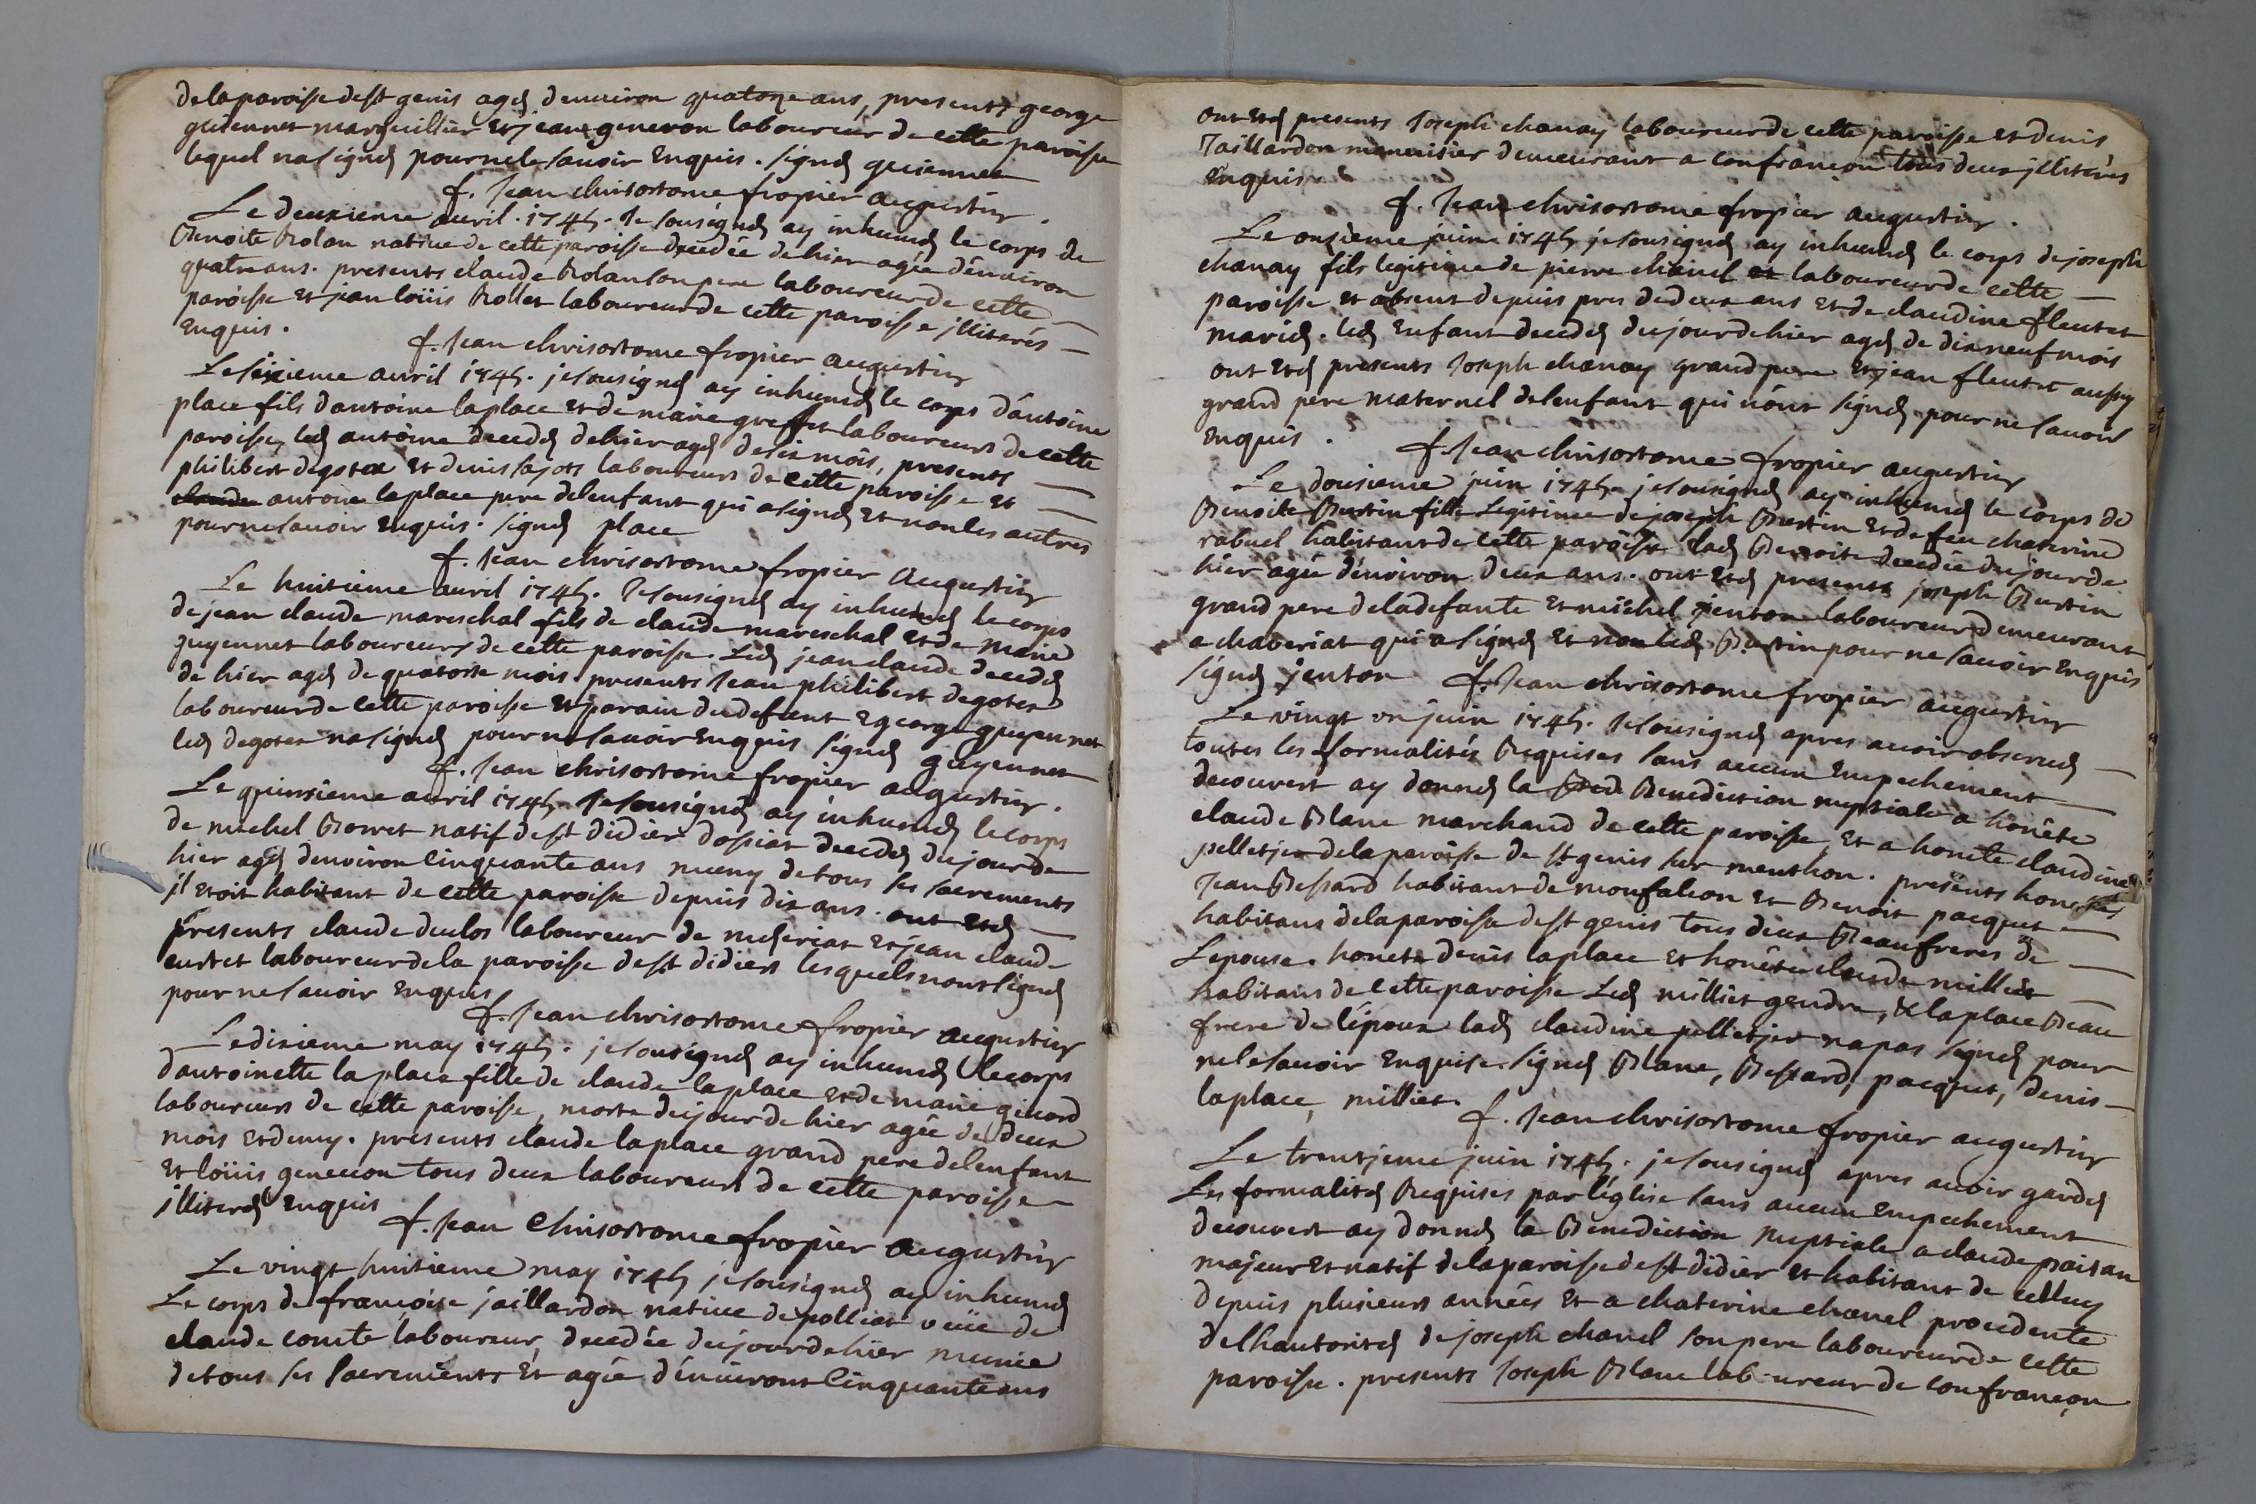 de la paroisse de st genis agé denuiron quatorze ans, presents george
guiennet marguillier et jean geneuon laboureur de cette paroisse
lequel na signé pour ne le sauoir enquis. signé guiennet
f. Jean chrisostome fropier augustin.
Le deuxieme auril. 1745. Je sousigné ay inhumé le corps de
Benoite Rolan natiue de cette paroisse decedée de hier agée dénuiron
quatre ans. presents claude Rolan son pere laboureur de cette
paroisse et jean loüis Rollet laboureur de cette paroisse jlliterés
enquis.
f. Jean chrisostome fropier augustin
Le sixieme auril 1745. je sousigné ay inhumé le corps dántoine
place fils dantoine laplace et de marie greffet laboureurs de cette
paroisse, led antoine decedé de hier agé de six mois, presents
philibert degotex et denis sajots laboureurs de cette paroisse et
claude antoine laplace pere de lenfant qui a signé et non les autres
pour ne sauoir enquis. signé place
f. Jean chrisostome fropier augustin
Le huitieme auril 1745. Je sousigné ay inhumé le corps
de jean claude mareschal fils de claude mareschal et de marie
guyennet laboureurs de cette paroisse. Led jean claude decedé
de hier agé de quatorse mois presents Jean philibert degotex
laboureur de cette paroisse et parain du defunt & george guyennet
led degotex na signé pour ne sauoir enquis signé guyennet
f. Jean chrisostome fropier augustin.
Le quinsieme auril 1745 Je sousigné ay inhumé le corps
de michel Borret natif de st didier dossiat decedé du jour de
hier agé denuiron cinquante ans muny de tous ses sacrements
il etoit habitant de cette paroisse depuis dix ans. ont eté
présents claude duclos laboureur de meseriat et jean claude
curtet laboureur de la paroisse de st didiers lesquels nont signé
pour ne sauoir enquis
f. Jean chrisostome fropier augustin
Le dixieme may 1745. je sousigné ay inhumé le corps
dantoinette laplace fille de claude laplace et de marie girord
laboureurs de cette paroisse, morte du jour de hier agée de deux
mois et demy. presents claude laplace grand pere de lenfant
et loüis geneuon tous deux laboureurs de cette paroisse
illiteré enquis
f. Jean Chrisostome fropier augustin
Le vingt huitieme may 1745 je sousigné ay inhumé
Le corps de françoise jaillardon natiue de polliat veüe de
claude comte laboureur, decedée du jour de hier munie
de tous ses sacrements et agée dénuiront cinquante ans
ont eté presents Joseph chanay laboureur de cette paroisse et denis
Jaillardon menuisier demeurant a confrançon tous deux jlliterés
enquis
f. Jean chrisostome fropier augustin.
Le onsieme juin 1745 je sousigné ay inhumé le corps de joseph
chanay fils legitime de pierre chanel et laboureur de cette
paroisse et absent depuis pres de deux ans et de claudine fleutet
mariés. led enfant decedé du jour de hier agé de dix neuf mois
ont eté presents Joseph chanay grand pere et jean fleutet aussy
grand pere maternel de lenfant qui nónt signé pour ne sauoir
enquis.
f. Jean chrisostome fropier augustin
Le dousieme juin 1745. je sousigné ay inhumé le corps de
Benoite Burtin fille Legitime de joseph Burtin et de feu chaterine
rabuel habitant de cette paroisse lad Benoite decedée du jour de
hier agée dénuiron deux ans. ont eté presents joseph Burtin
grand pere de la defante et michel jenton laboureur demeurant
a chaueriat qui a signé et non led Burtin pour ne sauoir enquis
signé jenton
f. Jean chrisostome fropier augustin
Le vingt un juin 1745. Je sousigné apres auoir obserué
toutes les formalités Requises sans aucun empechement
decouvert ay donné la Bened Benediction nuptiale a honéte
claude Blanc marchand de cette paroisse et a honete claudine
pelletjer de la paroisse de st genis sur menthon. presents honetes
Jean Bessard habitant de monfalcon et Benoit pacquet
habitans de la paroisse de st genis tous deux Beaufreres de
Lepouse. honete denis laplace et honéte claude milliet
habitans de cette paroisse Led milliet gendre, & laplace Beau
frere de lépoux lad claudine pelletjer na pas signé pour
ne le sauoir enquise. signé Blanc, Bessard, pacquet, denis
laplace, milliet.
f. Jean chrisostome fropier augustin
Le trentjeme juin 1745. je sousigné apres auoir gardé
Les formalités Requises par léglise sans aucun empechement
decouvert ay donné la Benediction nuptiale a claude paitan
majeur et natif de la paroisse de st didier et habitant de celluy
depuis plusieurs années et a chaterine chanel procedente
de lhautorité de joseph chanel son pere laboureur de cette
paroisse. presents Joseph Blanc laboureur de confrançon